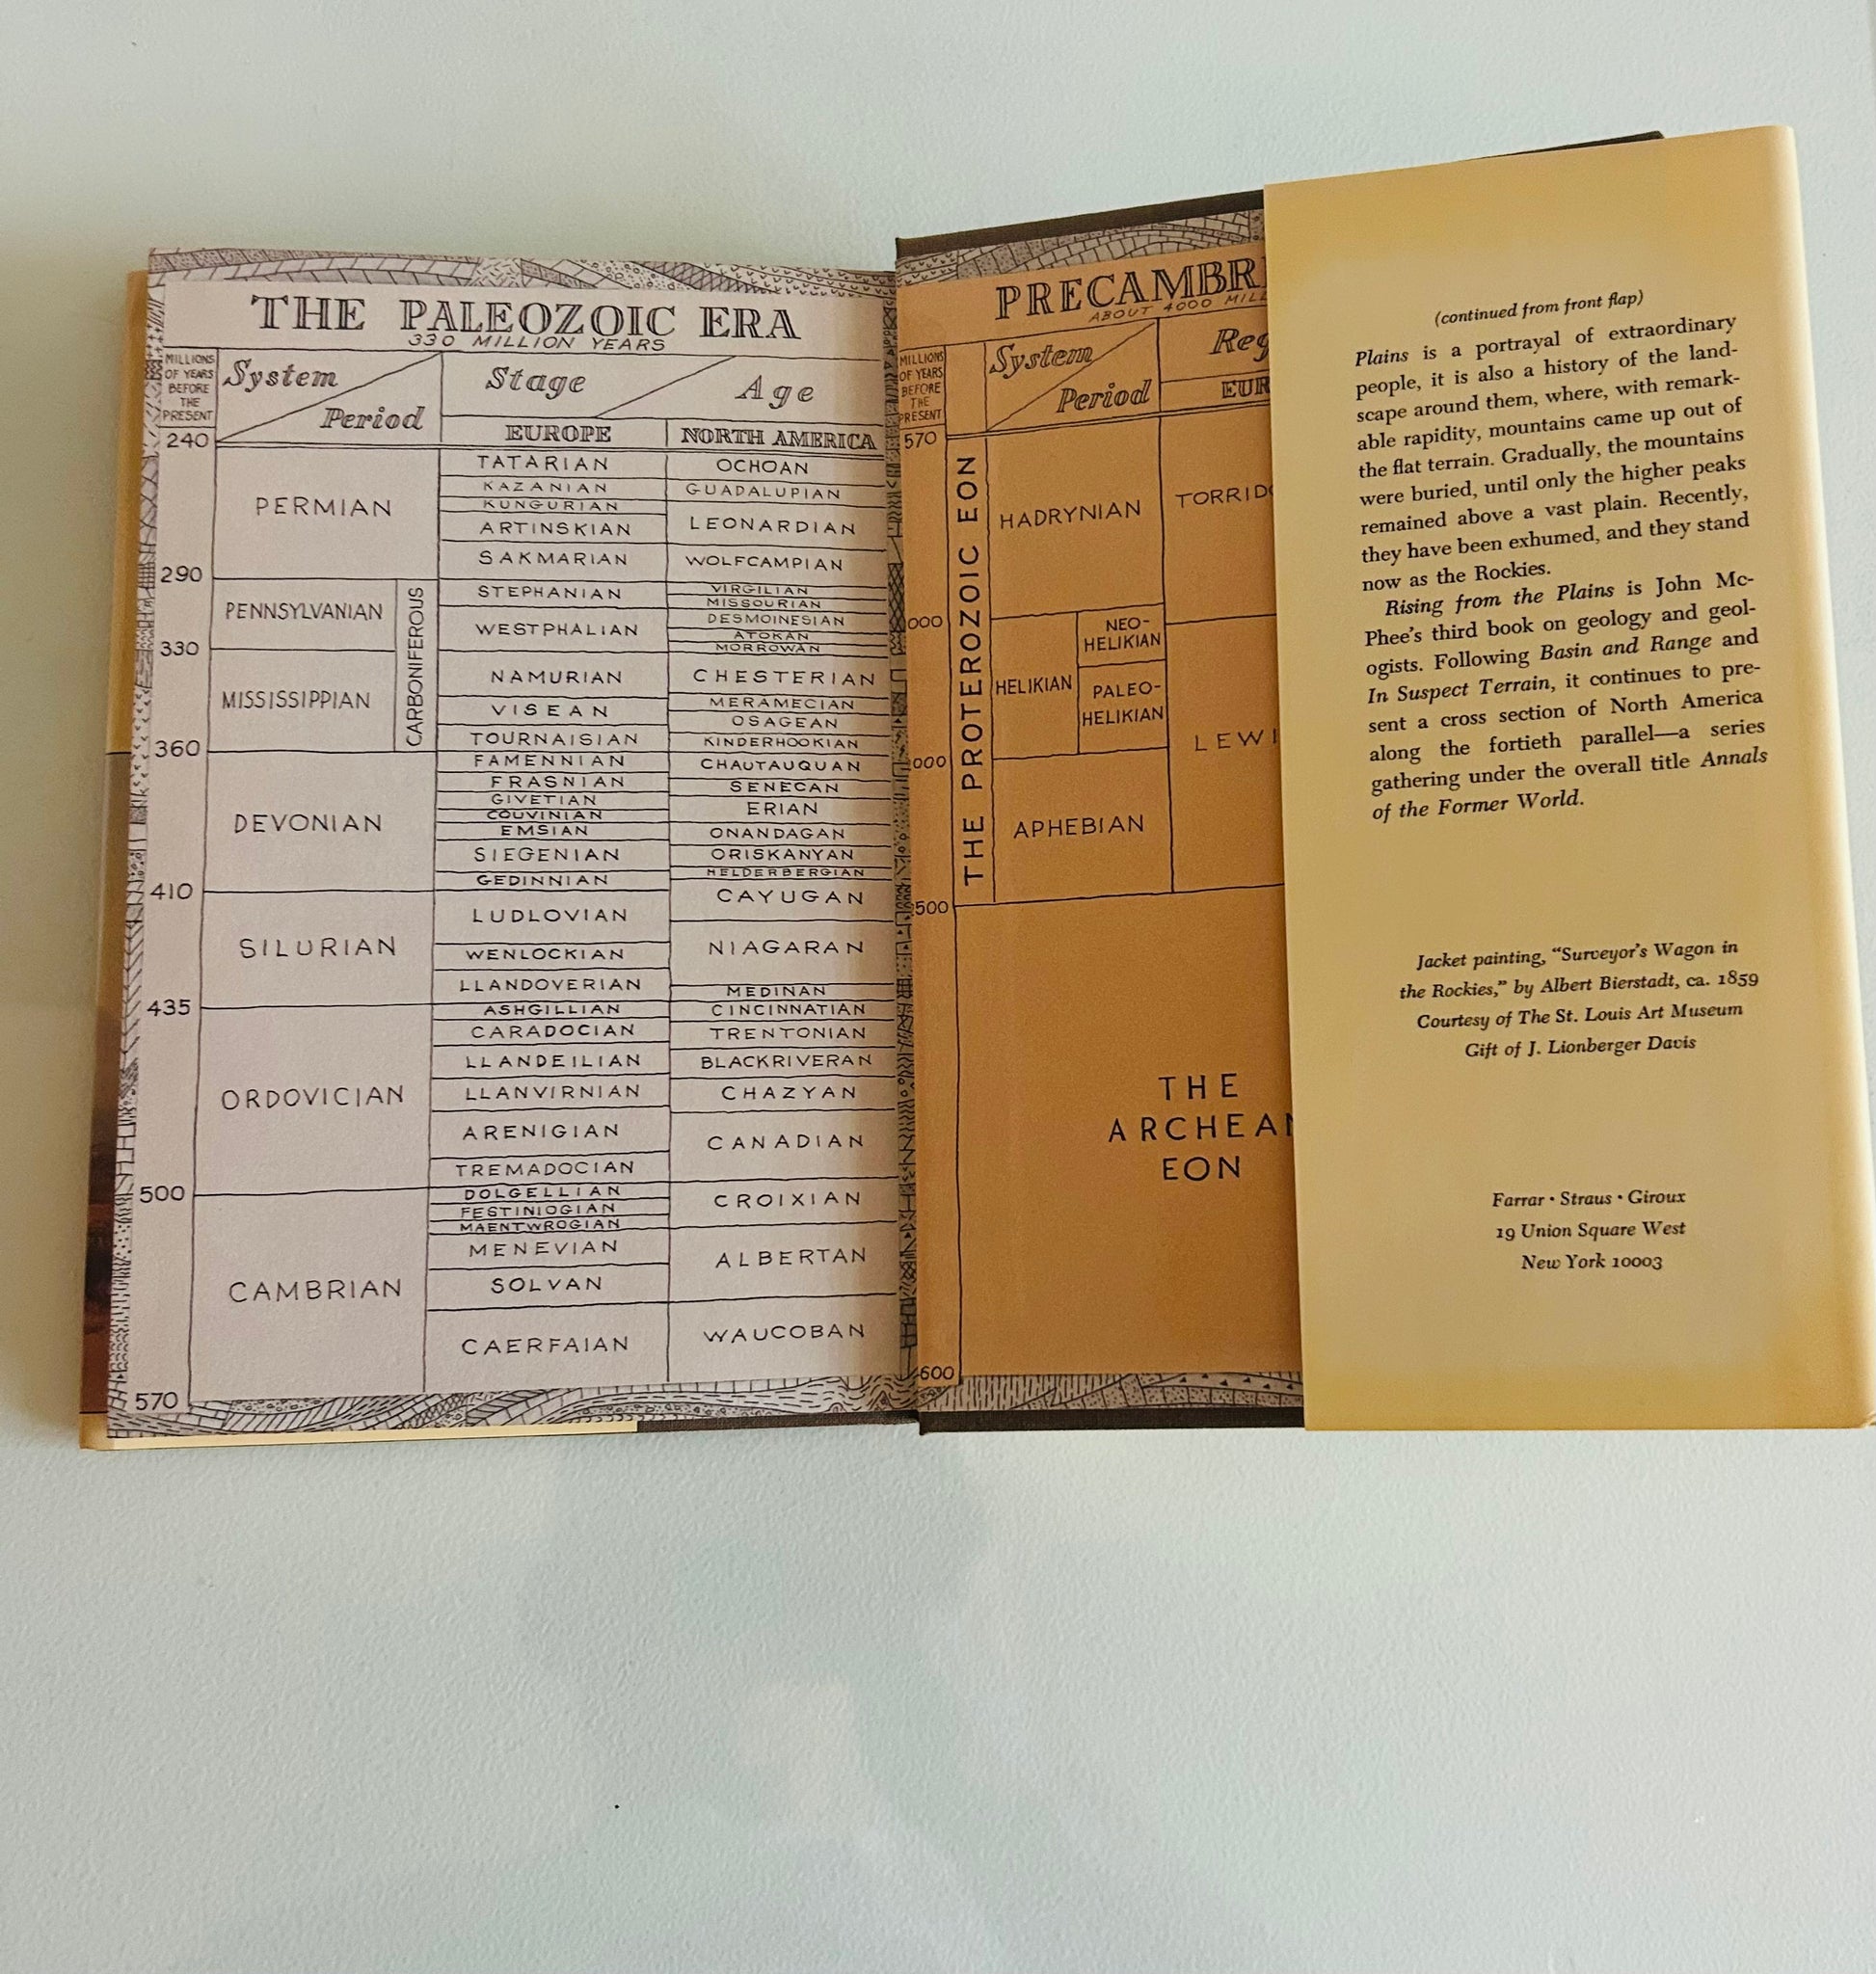 THE PALEOZOIC ERA
330 MILLION YEARS
MILLIONS
OF YEARS
BEFORE
THE
PRESENT
System
Period
Stage
Age
EUROPE
NORTH AMERICA
240
PERMIAN
TATARIAN
OCHOAN
KAZANIAN
GUADALUPIAN
KUNGURIAN
ARTINSKIAN
LEONARDIAN
SAKMARIAN
WOLFCAMPIAN
290
PENNSYLVANIAN
CARBONIFEROUS
STEPHANIAN
VIRGILIAN
MISSOURIAN
WESTPHALIAN
DESMOINESIAN
ATOKAN
MORROWAN
330
MISSISSIPPIAN
NAMURIAN
CHESTERIAN
VISEAN
MERAMECIAN
OSAGEAN
TOURNAISIAN
KINDERHOOKIAN
360
DEVONIAN
FAMENNIAN
CHAUTAUQUAN
FRASNIAN
SENECAN
GIVETIAN
ERIAN
COUVINIAN
EMSIAN
ONANDAGAN
SIEGENIAN
ORISKANYAN
GEDINNIAN
HELDERBERGIAN
410
SILURIAN
LUDLOVIAN
CAYUGAN
WENLOCKIAN
NIAGARAN
LLANDOVERIAN
MEDINAN
435
ORDOVICIAN
ASHGILLIAN
CINCINNATIAN
CARADOCIAN
TRENTONIAN
LLANDEILIAN
BLACKRIVERAN
LLANVIRNIAN
CHAZYAN
ARENIGIAN
CANADIAN
TREMADOCIAN
500
CAMBRIAN
DOLGELLIAN
CROIXIAN
FESTINIOGIAN
MAENTWROGIAN
MENEVIAN
ALBERTAN
SOLVAN
CAERFAIAN
WAUCOBAN
570
PRECAMBRI
ABOUT 4000 MILL
MILLIONS
OF YEARS
BEFORE
THE
PRESENT
System
Period
Reg
EUR
570
THE PROTEROZOIC EON
HADRYNIAN
TORRID
000
HELIKIAN
NEO-
HELIKIAN
PALEO-
HELIKIAN
LEWI
000
APHEBIAN
500
THE
ARCHEAN
EON
600
(continued from front flap)
Plains is a portrayal of extraordinary
people, it is also a history of the land-
scape around them, where, with remark-
able rapidity, mountains came up out of
the flat terrain. Gradually, the mountains
were buried, until only the higher peaks
remained above a vast plain. Recently,
they have been exhumed, and they stand
now as the Rockies.
Rising from the Plains is John Mc-
Phee's third book on geology and geol-
ogists. Following Basin and Range and
In Suspect Terrain, it continues to pre-
sent a cross section of North America
along the fortieth parallel—a series
gathering under the overall title Annals
of the Former World.
Jacket painting, "Surveyor's Wagon in
the Rockies," by Albert Bierstadt, ca. 1859
Courtesy of The St. Louis Art Museum
Gift of J. Lionberger Davis
Farrar • Straus • Giroux
19 Union Square West
New York 10003